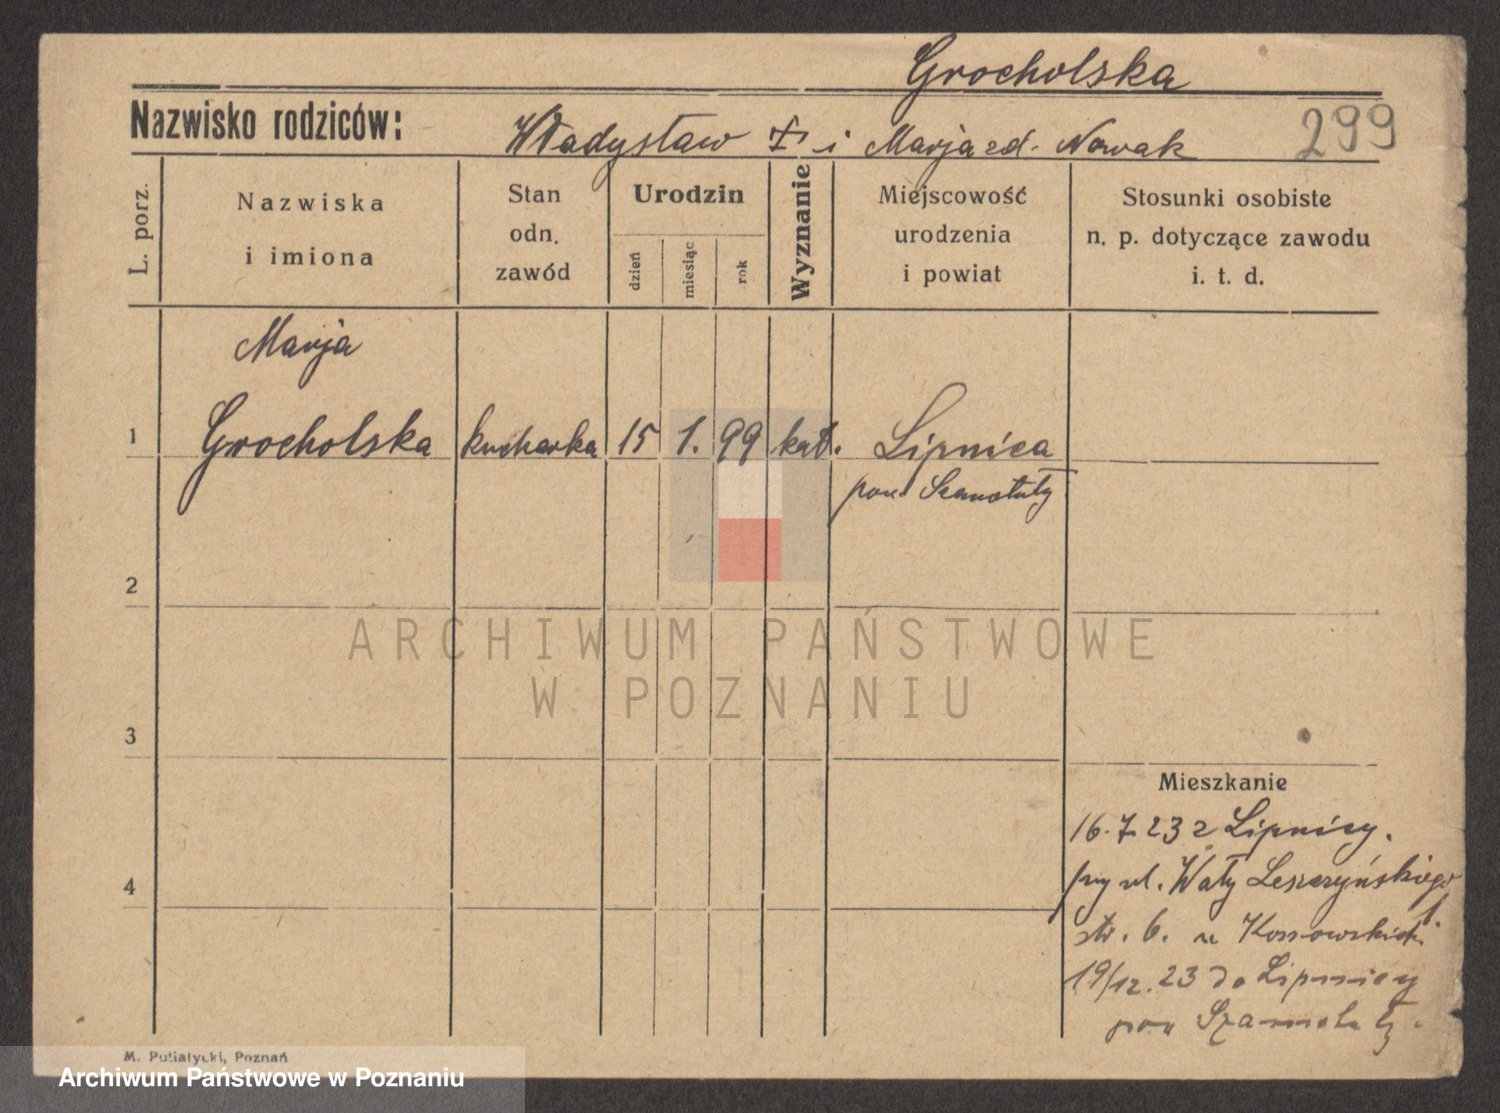 Grocholska
Nazwisko rodziców: Władysław † i Marja zd. Nowak
299
L. porz.
Nazwiska
i imiona
Stan
odn.
zawód
Urodzin
dzień
miesiąc
rok
Wyznanie
Miejscowość
urodzenia
i powiat
Stosunki osobiste
n. p. dotyczące zawodu
i. t. d.
Marja
1 Grocholska kucharka 15 1. 99 kat. Lipnica
pow. Szamotuły
2
3
4
ARCHIWUM PAŃSTWOWE
W POZNANIU
Mieszkanie
16.7.23 z Lipnicy.
przy ul. Wały Leszczyńskiego
str. 6. u Kossowskich
19/12.23 do Lipnicy
pow Szamotuły.
M. Putiatycki, Poznań
Archiwum Państwowe w Poznaniu